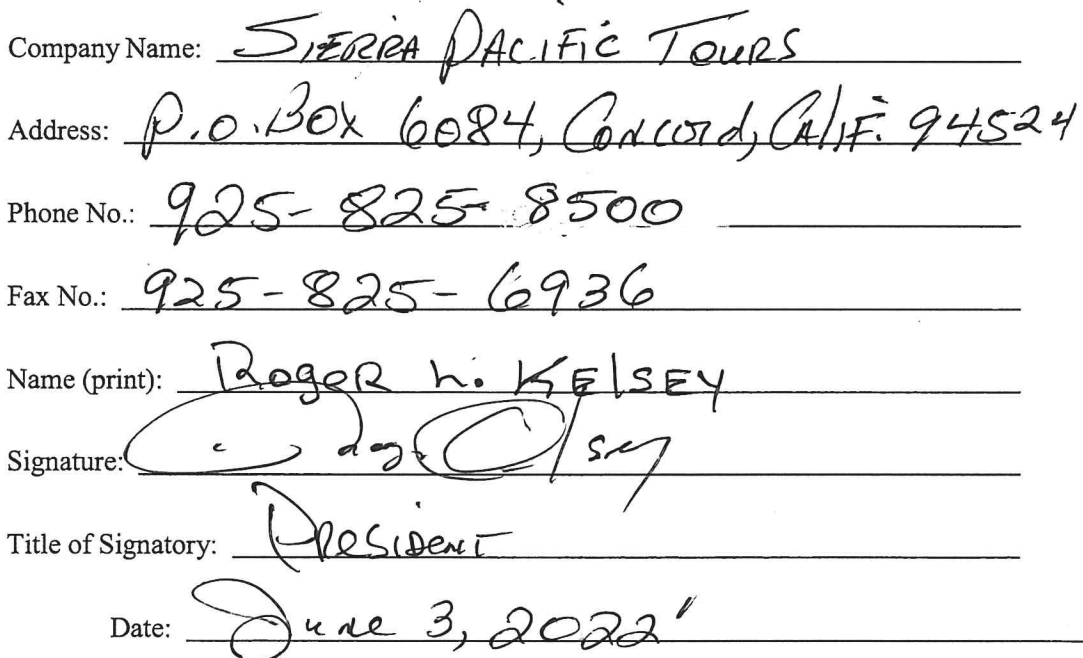 Company Name: SIERRA PACIFIC TOURS
Address: P.O. BOX 6084, Concord, CALIF. 94524
Phone No.: 925-825-8500
Fax No.: 925-825-6936
Name (print): ROGER h. KELSEY
Signature:
Title of Signatory: PRESIDENT
Date: June 3, 2022